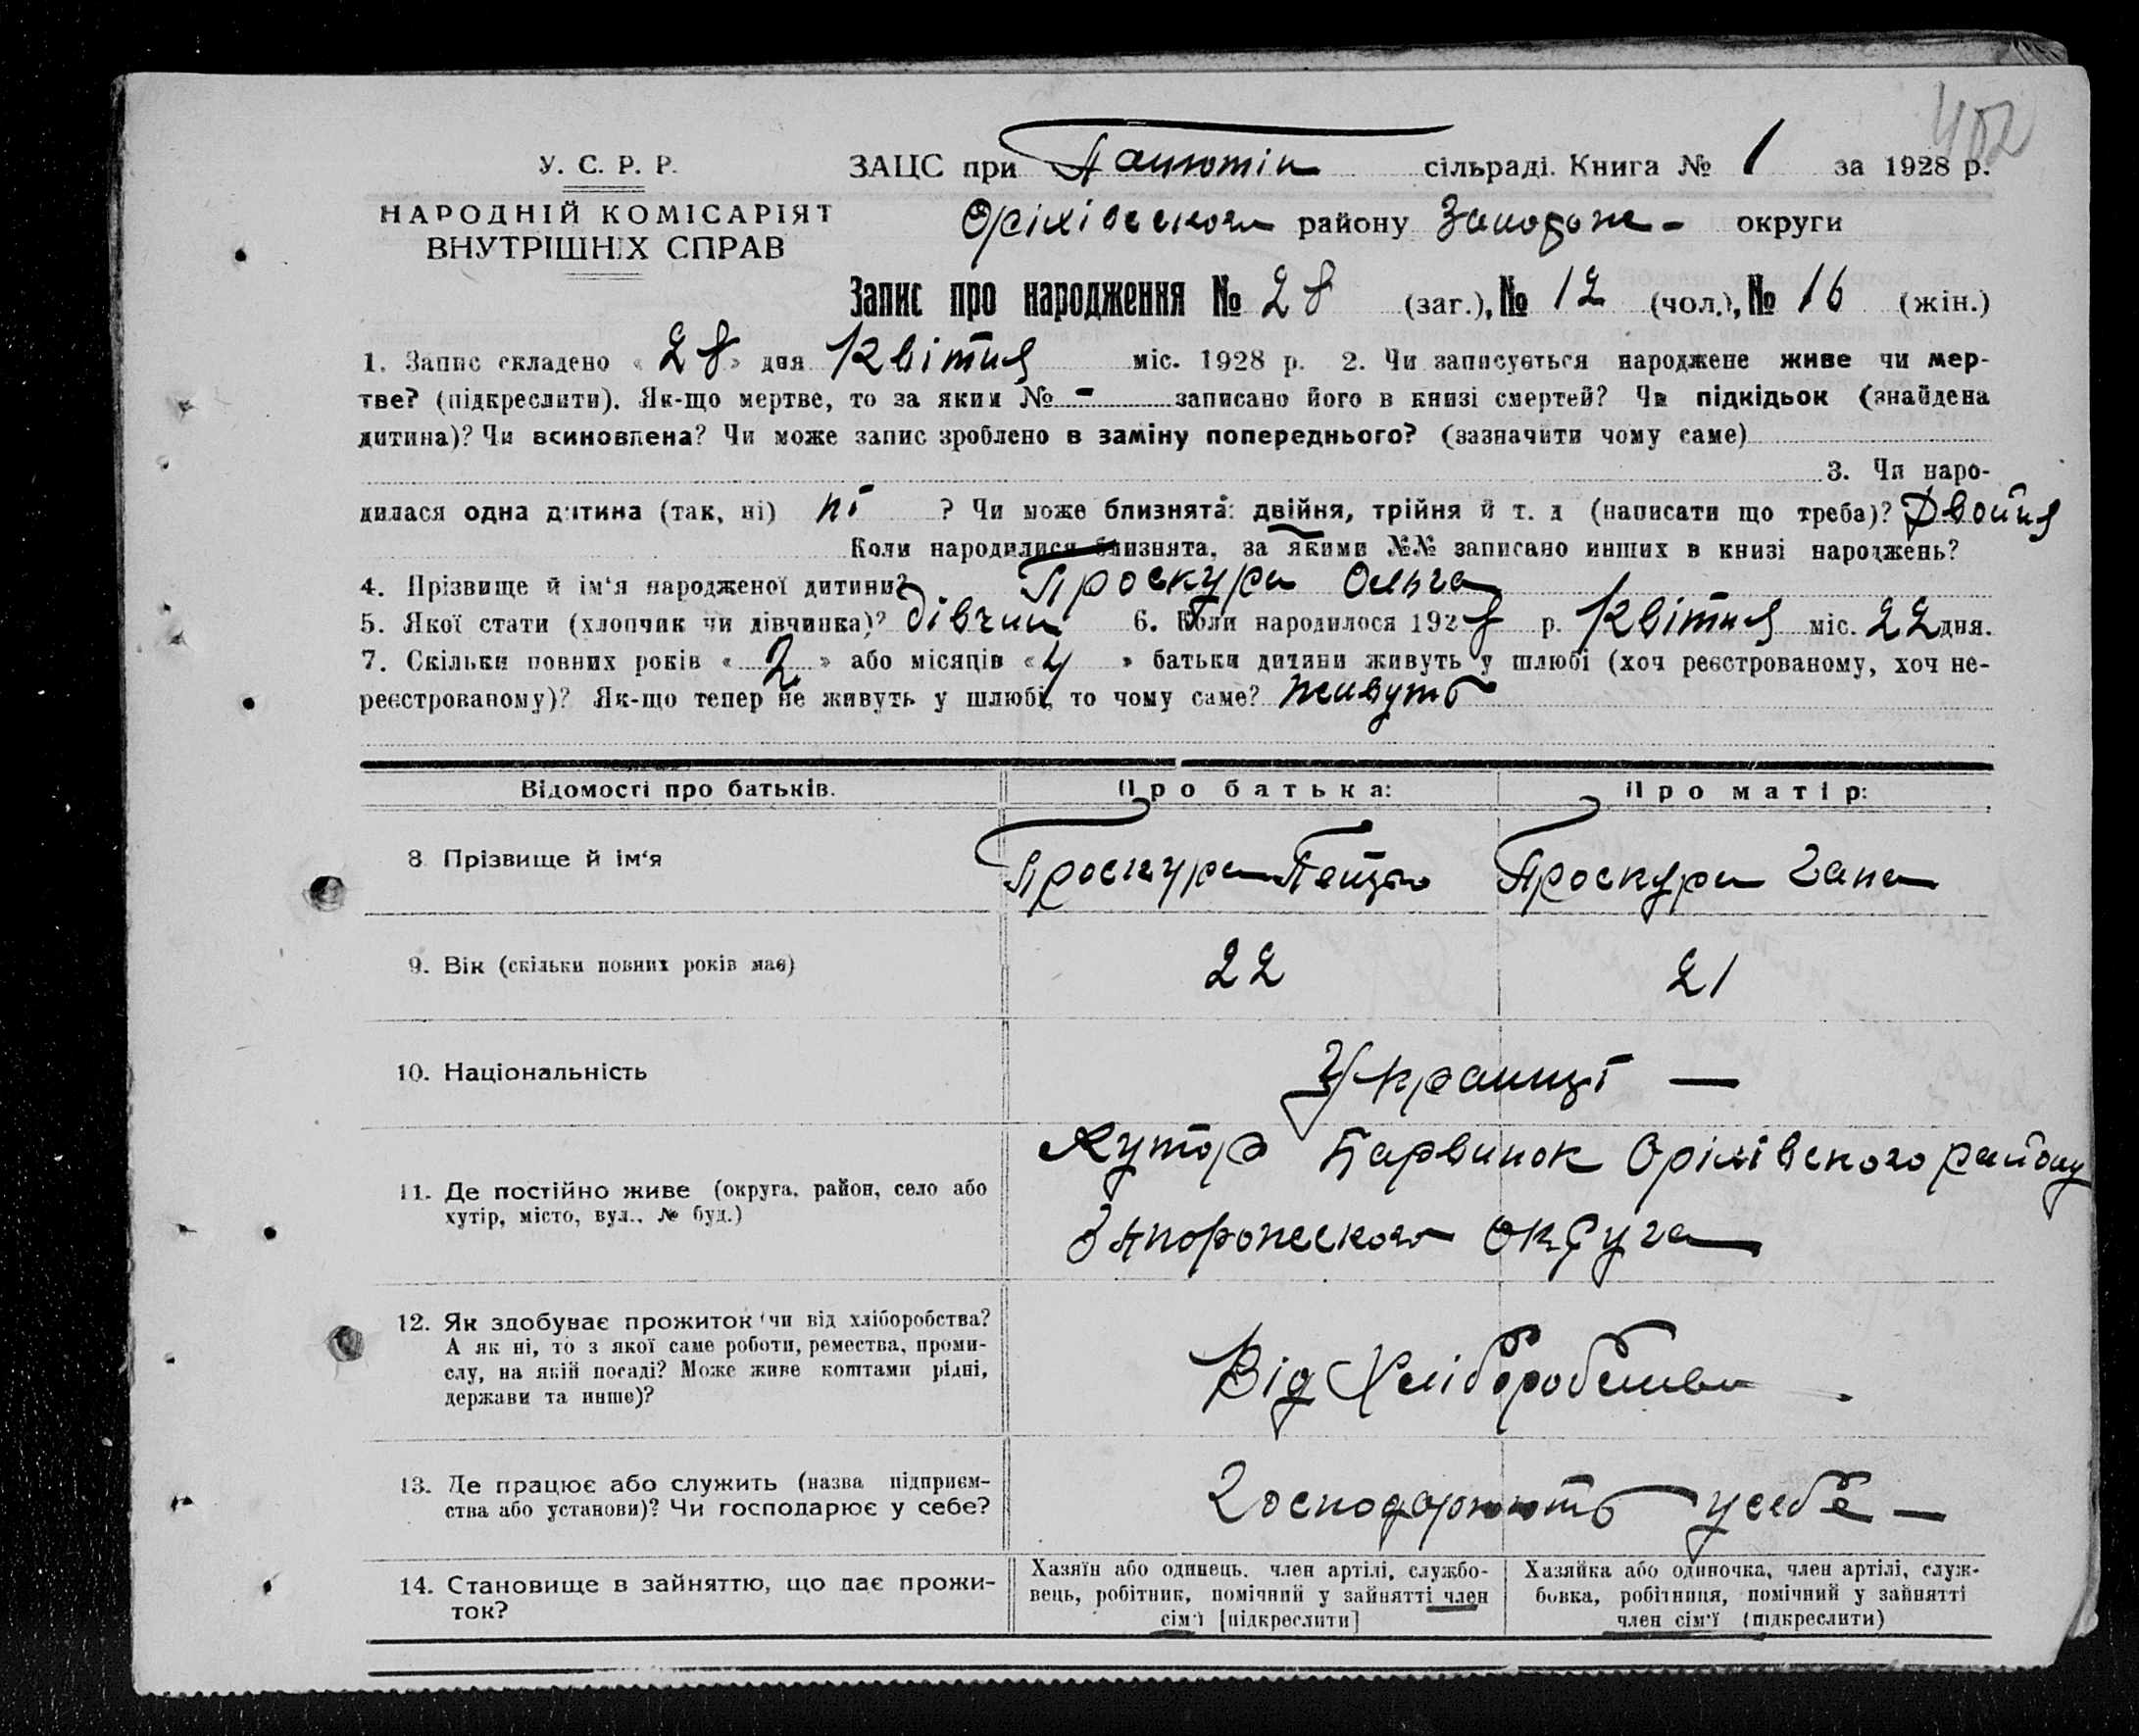 402
У. С. Р. Р.
НАРОДНІЙ КОМІСАРІЯТ
ВНУТРІШНІХ СПРАВ
ЗАЦС при сільраді. Книга № 1 за 1928 р.
Оріхівського району Запорож- округи
Запис про народження № 28 (заг.), № 12 (чол.), № 16 (жін.)
1. Запис складено « 28 » дня Квітня міс. 1928 р. 2. Чи записується народжене живе чи мер-
тве? (підкреслити). Як-що мертве, то за яким № - записано його в книзі смертей? Чи підкідьок (знайдена
дитина)? Чи всиновлена? Чи може запис зроблено в заміну попереднього? (зазначити чому саме)
3. Чи наро-
дилася одна дитина (так, ні) ні ? Чи може близнята: двійня, трійня й т. д (написати що треба)? Двойня
Коли народилися близнята, за якими №№ записано инших в книзі народжень?
4. Прізвище й ім‘я народженої дитини? Проскура Ольга
5. Якої стати (хлопчик чи дівчинка)? дівчин 6. Коли народилося 1928 р. Квітня міс. 22 дня.
7. Скільки повних років « 2 » або місяців « 4 » батьки дитини живуть у шлюбі (хоч реєстрованому, хоч не-
реєстрованому)? Як-що тепер не живуть у шлюбі, то чому саме? живуть
Відомості про батьків. Про батька: Про матір:
8 Прізвище й ім‘я Проскура Проскура Гана
9. Вік (скільки повних років має) 22 21
10. Національність Украинці —
11. Де постійно живе (округа, район, село або
хутір, місто, вул., № буд.)
Хутор Барвинок Оріхівского району
Запорожского округа
12. Як здобуває прожиток чи від хліборобства?
А як ні, то з якої саме роботи, ремества, проми-
слу, на якій посаді? Може живе коштами рідні,
держави та инше)?
Від Хеліборобства
13. Де працює або служить (назва підприєм-
ства або установи)? Чи господарює у себе?
Господарюють у себе —
14. Становище в зайняттю, що дає прожи-
ток?
Хазяїн або одинець, член артілі, службо-
вець, робітник, помічний у зайнятті член
сім‘ї [підкреслити]
Хазяйка або одиночка, член артілі, служ-
бовка, робітниця, помічний у зайнятті
член сім‘ї (підкреслити)